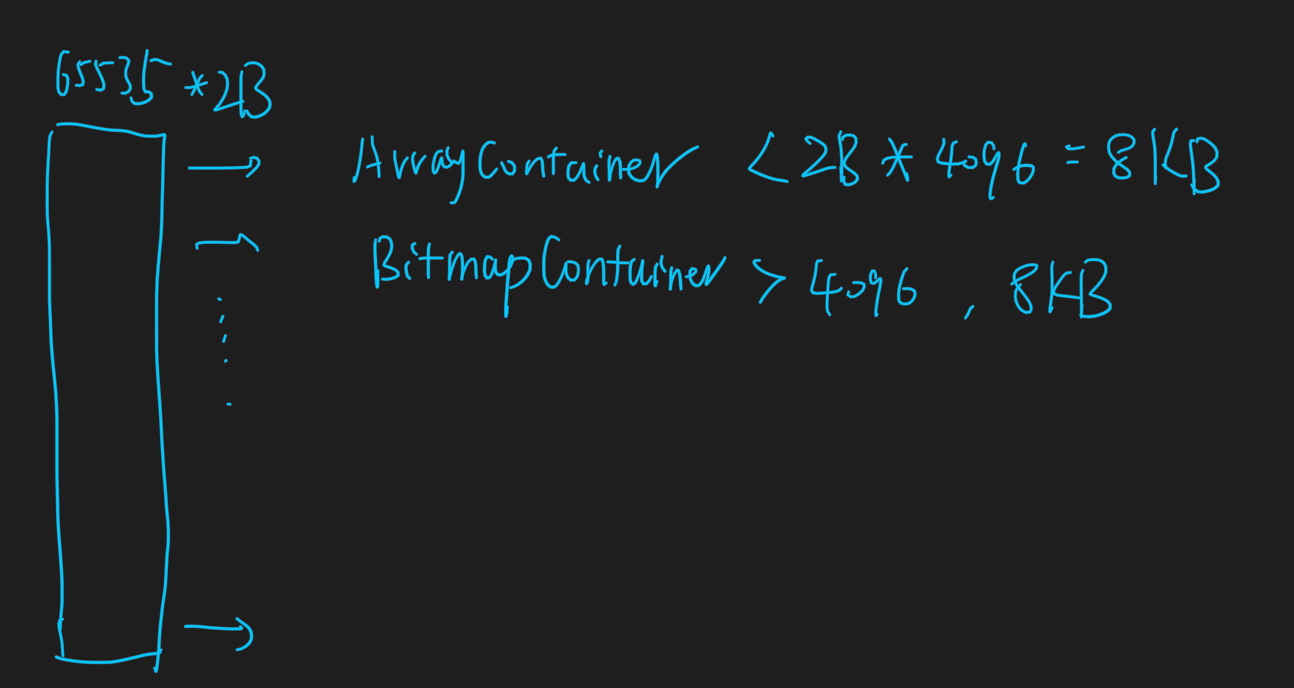 65535 *2B
ArrayContainer < 2B * 4096 = 8KB
BitmapContainer > 4096 , 8KB